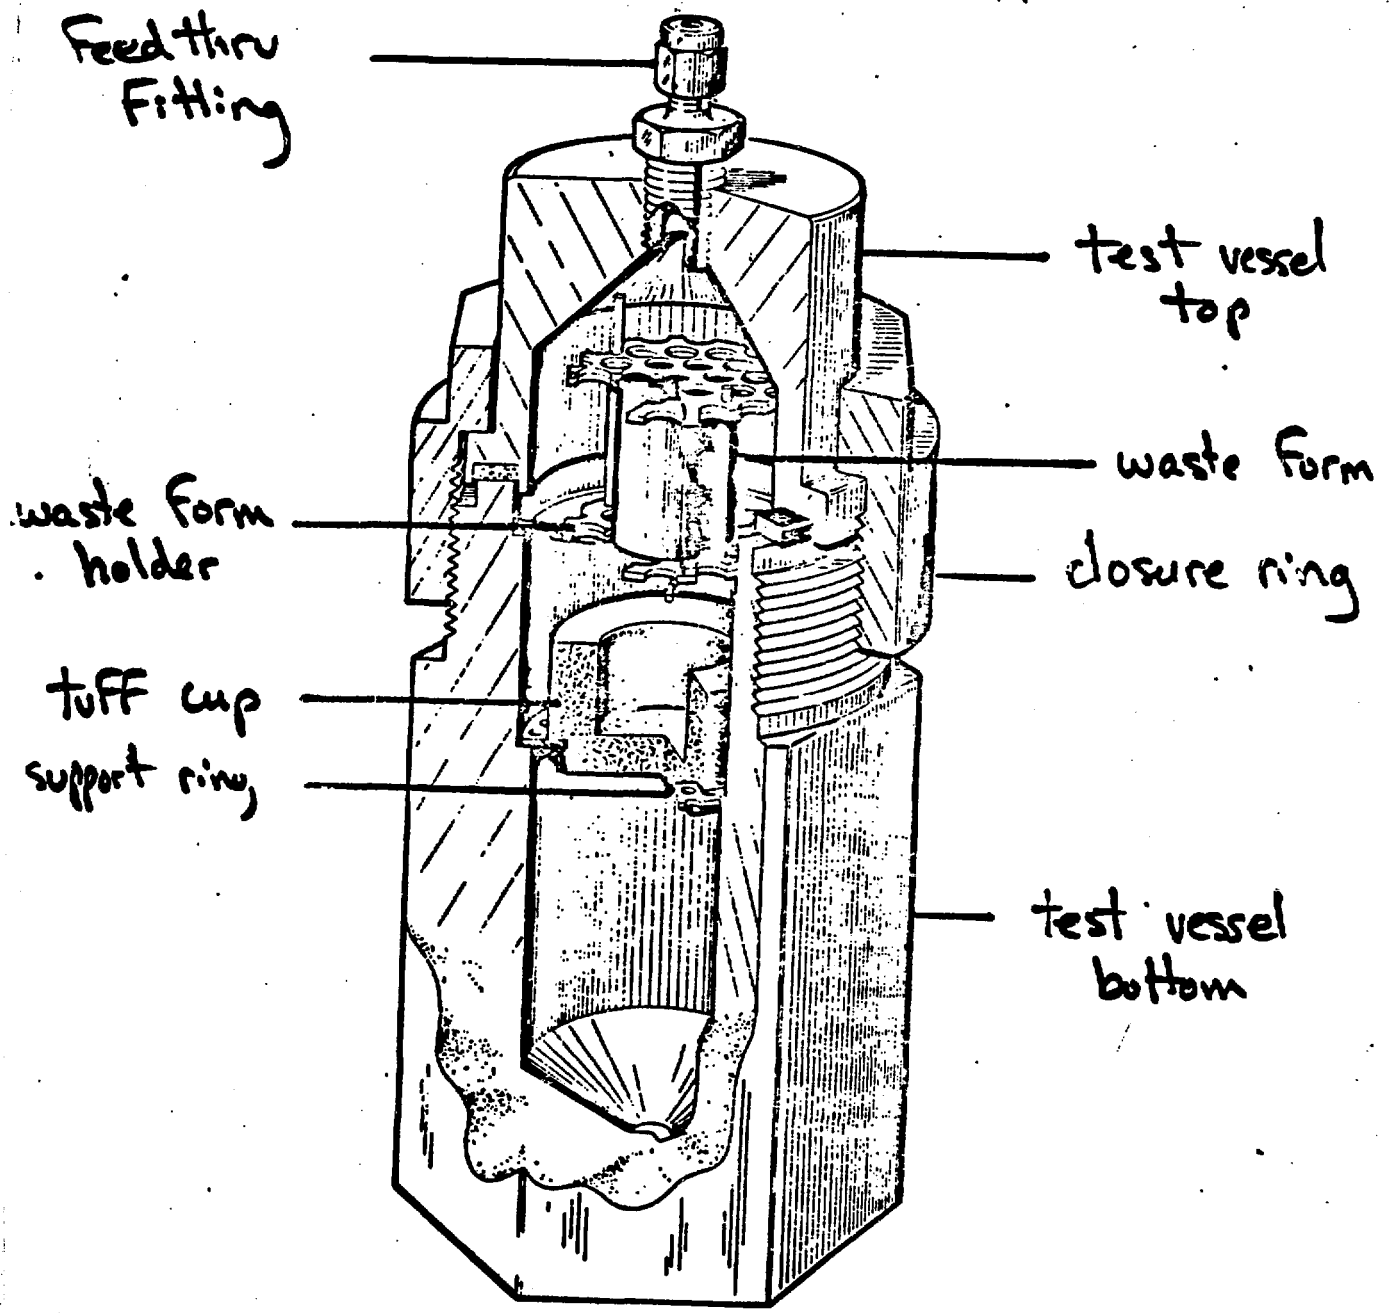 Feedthru
Fitting
test vessel
top
waste form
waste form
holder
closure ring
tuff cup
support ring
test vessel
bottom